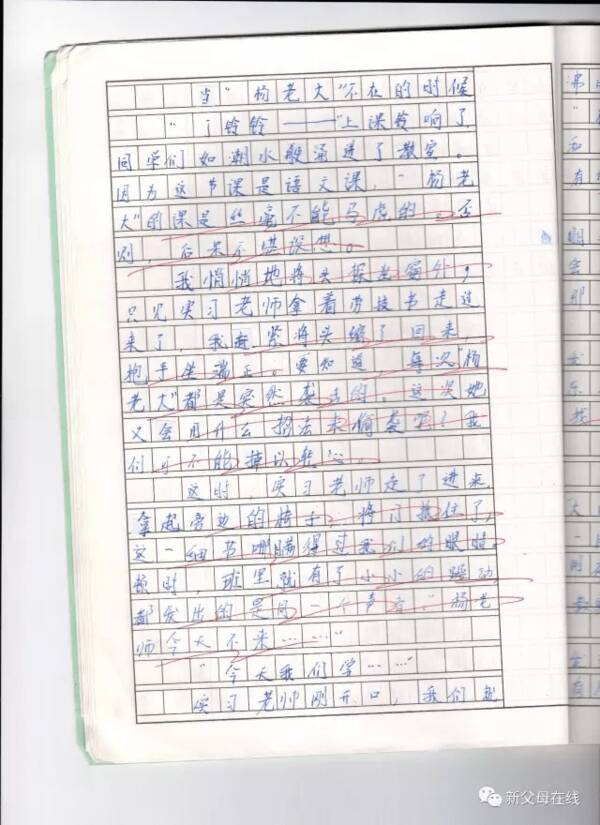 当"杨老大"不在的时候
"丁铃铃——"上课铃响了
同学们如潮水般涌进了教室。
因为这节课是语文课,"杨老
大"的课是丝毫不能马虎的。否
则,后果不堪设想。
我悄悄地将头探出窗外,
只见实习老师拿着劳技书走过
来了,我赶紧将头缩了回来
抱手坐端正。要知道,每次"杨
老大"都是突然袭击的。这次她
又会用什么招法来偷袭呢?我
们可不能掉以轻心。
这时,实习老师走了进来
拿起旁边的椅子,将门抵住了,
这一细节哪瞒得过我们的眼睛。
顿时,班里就有了小小的骚动
都发出的是同一个声音:"杨老
师今天不来……"
"今天我们学……"
实习老师刚开口,我们就
新父母在线